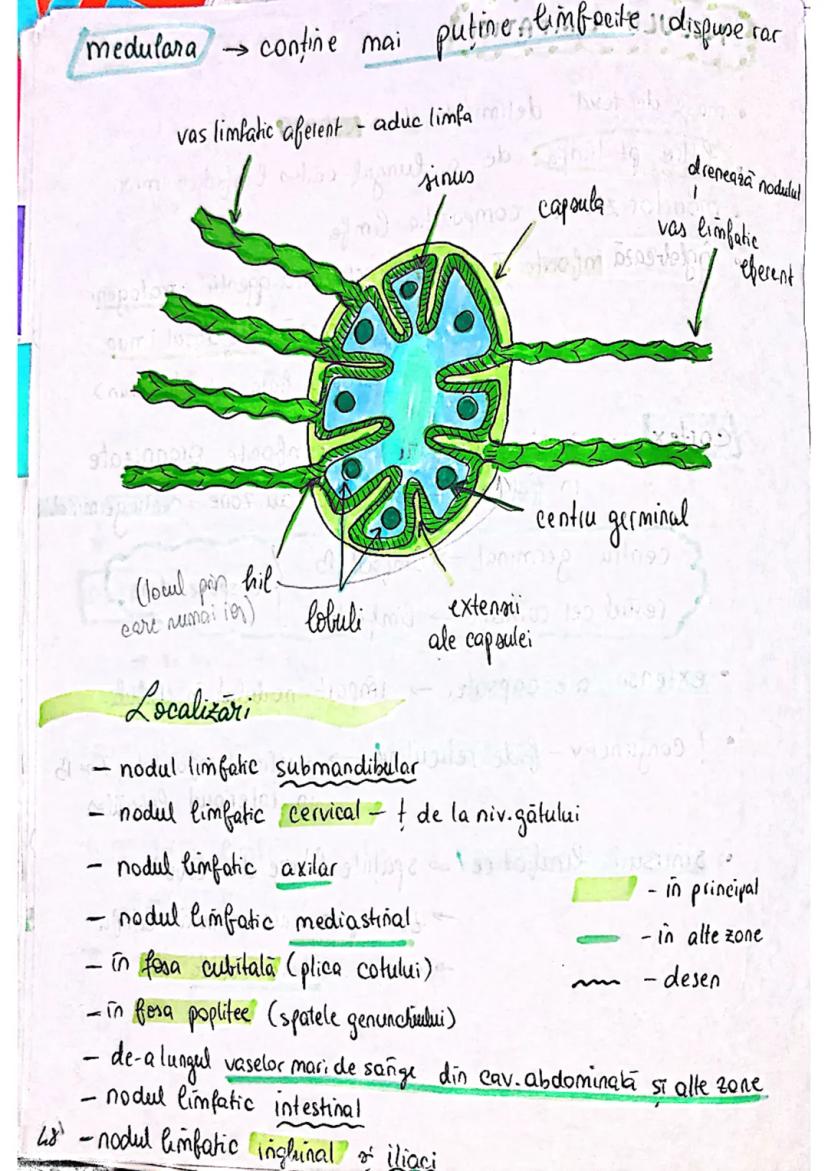 medulara → conține mai puține limfocite dispuse rar
vas limfatic aferent - aduc limfa
sinus
capsula
drenează nodulul
vas limfatic
eferent
centru germinal
(locul prin
care numai ies)
hil
lobuli
extensii
ale capsulei
Localizări
- nodul limfatic submandibular
- nodul limfatic cervical - ț de la niv. gâtului
- nodul limfatic axilar
- nodul limfatic mediastinal
- în fosa cubitală (plica cotului)
- în fosa poplitee (spatele genunchiului)
- de-a lungul vaselor mari de sânge din cav. abdominală și alte zone
- nodul limfatic intestinal
- nodul limfatic inghinal și iliaci
- în principal
- în alte zone
- desen